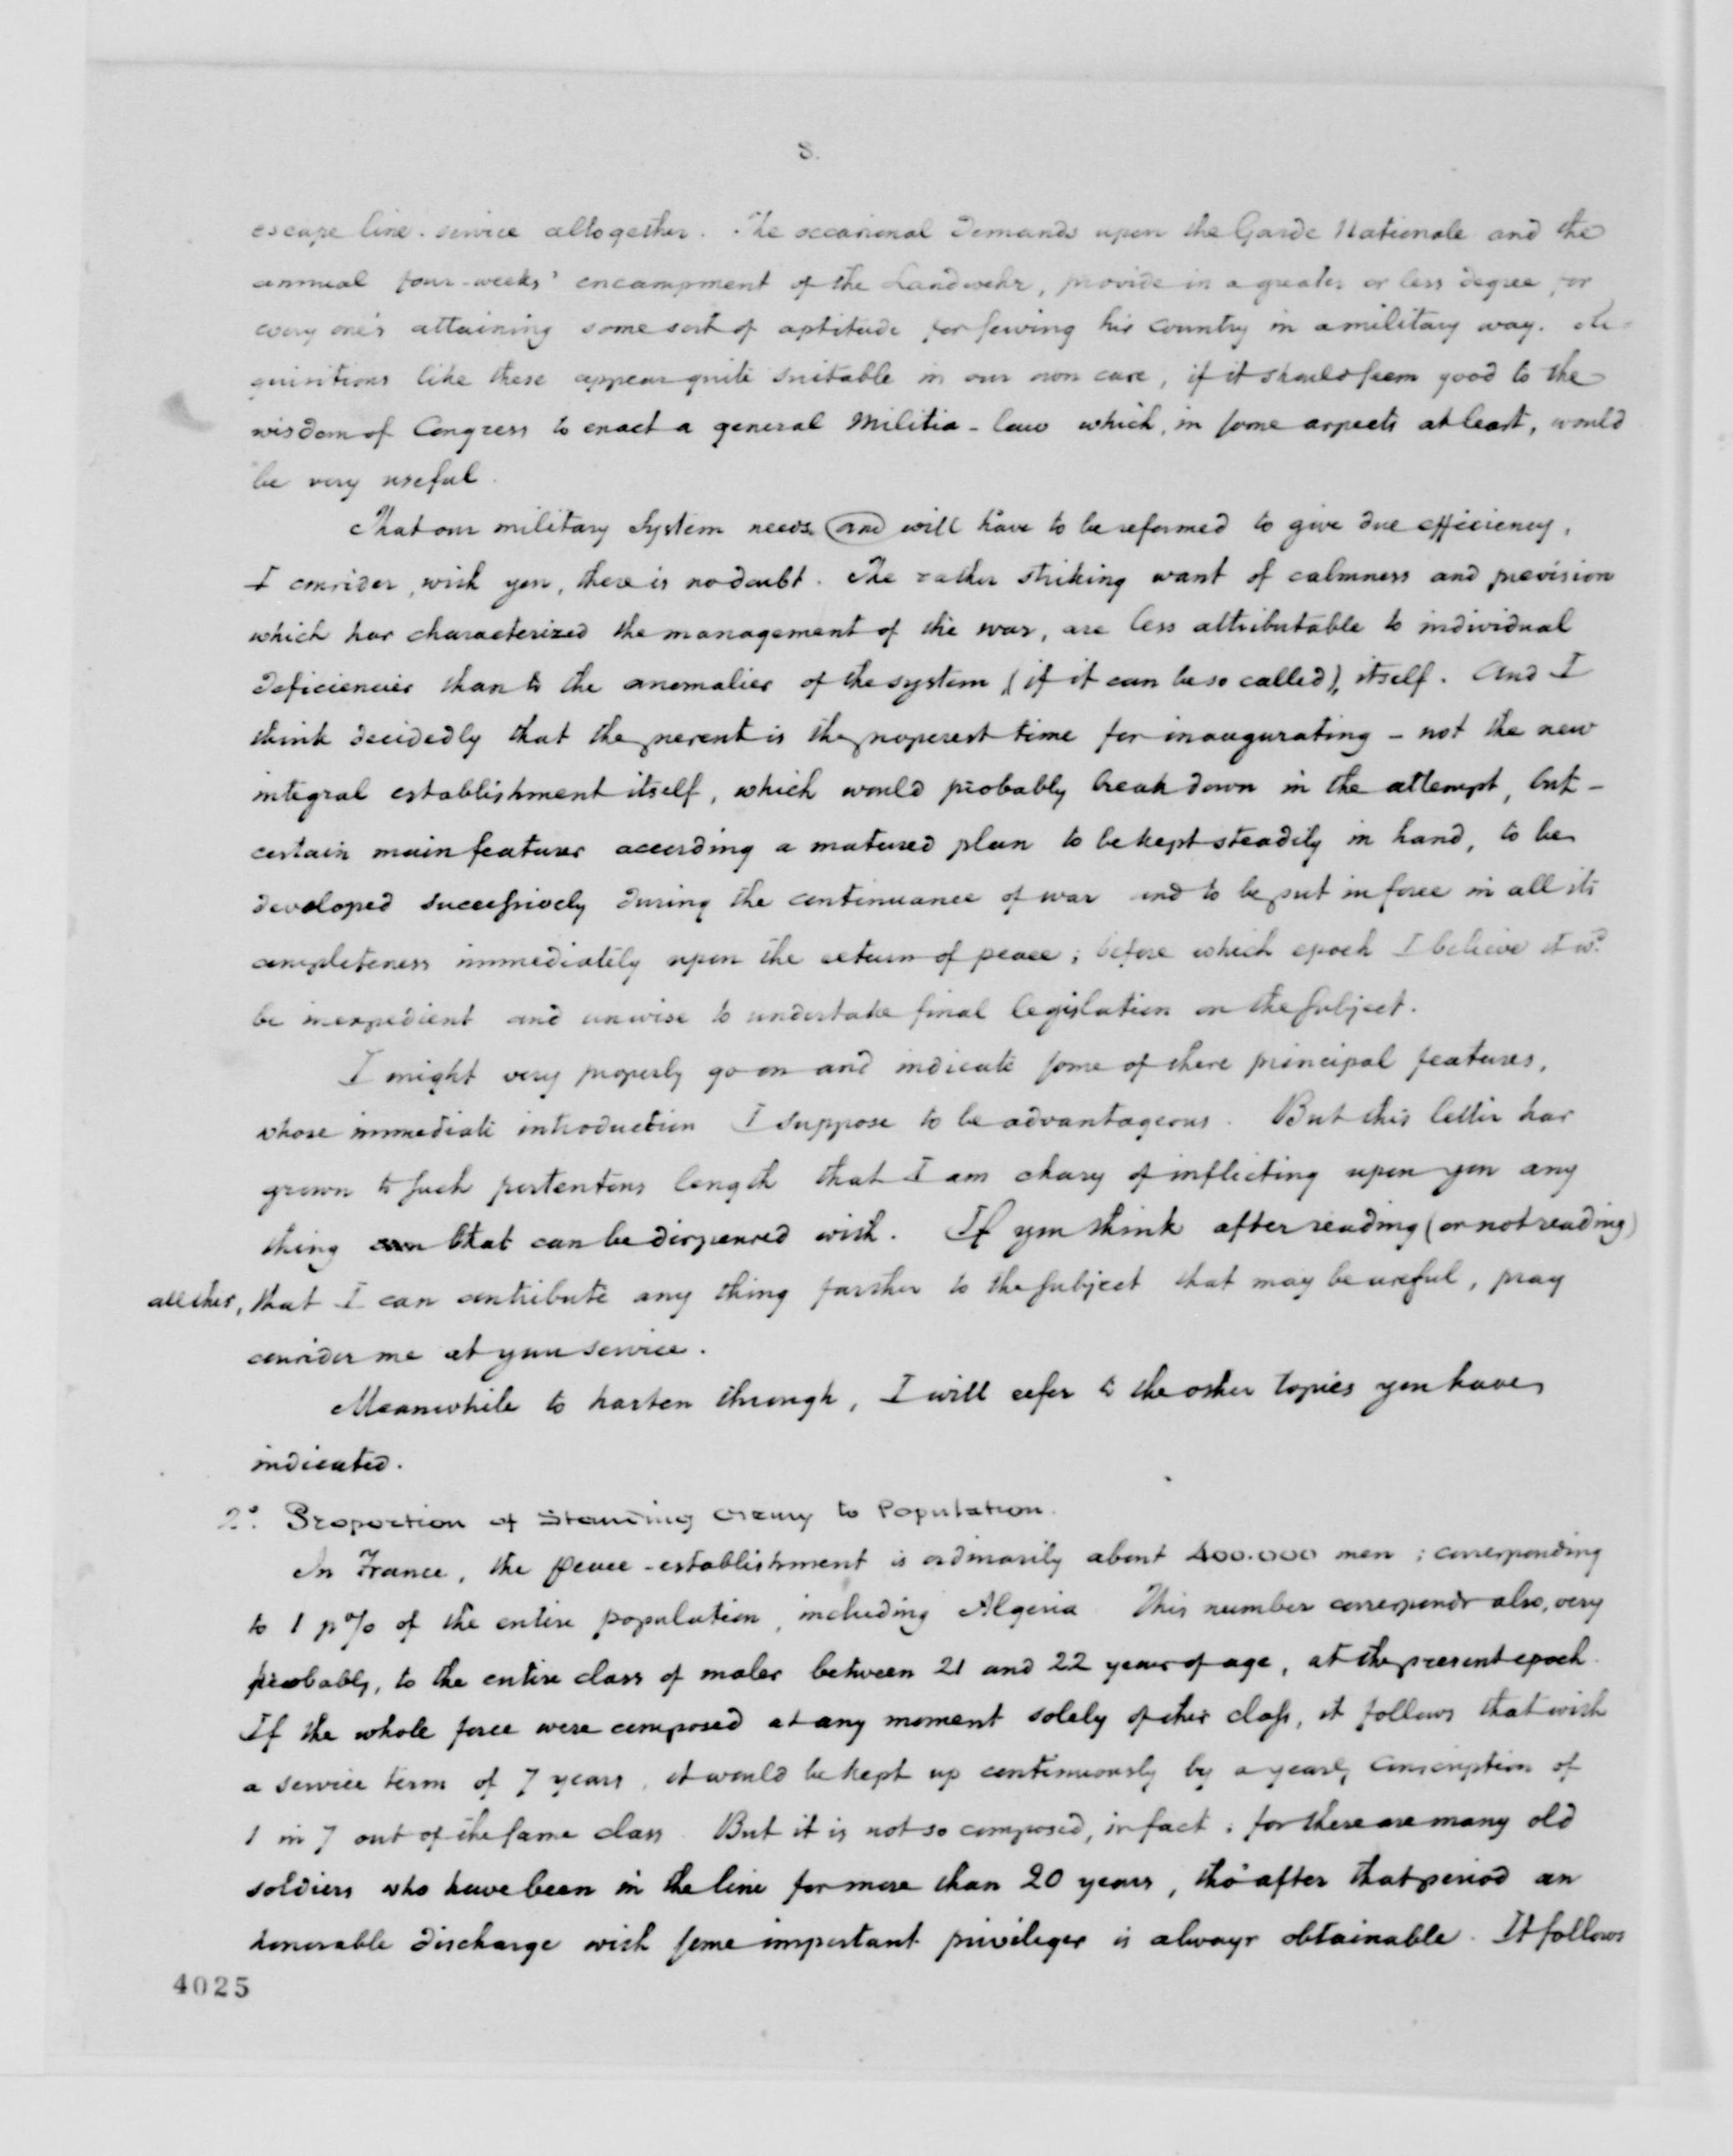 8.
escape line-service altogether. The occasional demands upon the Garde Nationale and the
annual four-weeks' encampment of the Landwehr, provide in a greater or less degree for
every one's attaining some sort of aptitude for serving his country in a military way. Re-
quisitions like these appear quite suitable in our own case, if it should seem good to the
wisdom of Congress to enact a general Militia-law which, in some aspects at least, would
be very useful.
That our military System needs and will have to be reformed to give due efficiency,
I consider, with you, there is no doubt. The rather striking want of calmness and prevision
which has characterized the management of the war, are less attributable to individual
deficiencies than to the anomalies of the system (if it can be so called), itself. And I
think decidedly that the present is the properest time for inaugurating – not the new
integral establishment itself, which would probably break down in the attempt, but –
certain main features according a matured plan to be kept steadily in hand, to be
developed successively during the continuance of war and to be put in force in all its
completeness immediately upon the return of peace; before which epoch I believe it wd
be inexpedient and unwise to undertake final legislation on the subject.
I might very properly go on and indicate some of these principal features,
whose immediate introduction I suppose to be advantageous. But this letter has
grown to such portentous length that I am chary of inflicting upon you any
thing that can be dispensed with. If you think after reading (or not reading)
all this, that I can contribute any thing farther to the subject that may be useful, pray
consider me at your service.
Meanwhile to hasten through, I will refer to the other topics you have
indicated.
2o. Proportion of Standing Army to Population.
In France, the peace-establishment is ordinarily about 400.000 men; corresponding
to 1 p% of the entire population, including Algeria. This number corresponds also, very
probably, to the entire class of males between 21 and 22 years of age, at the present epoch.
If the whole force were composed at any moment solely of this class, it follows that with
a service term of 7 years, it would be kept up continuously by a yearly conscription of
1 in 7 out of the same class. But it is not so composed, in fact; for there are many old
soldiers who have been in the line for more than 20 years, tho' after that period an
honorable discharge with some important privileges is always obtainable. It follows
4025